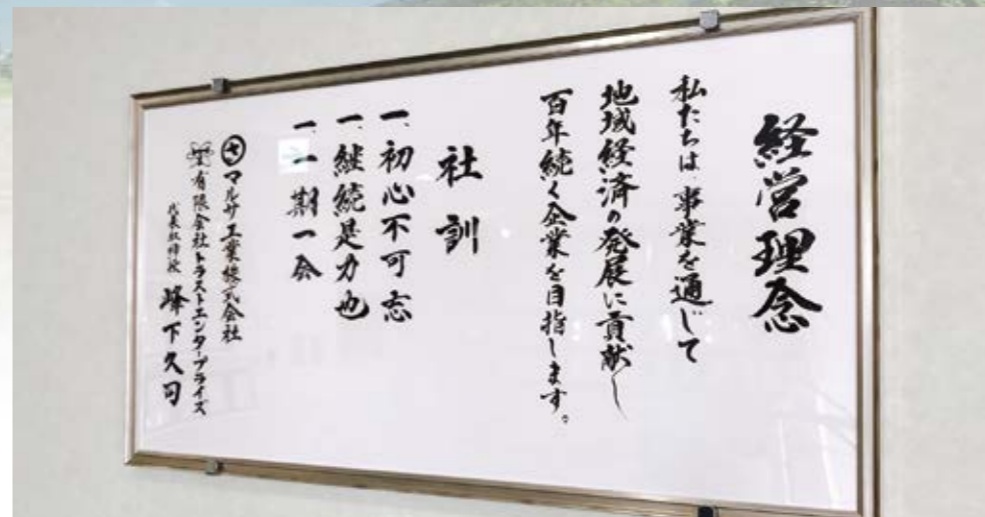 経営理念
私たちは事業を通じて
地域経済の発展に貢献し
百年続く企業を目指します。
社訓
一、初心不可忘
一、継続是力也
一、一期一会
サ マルサ工業株式会社
有限会社トラストエンタープライズ
代表取締役 峰下久司